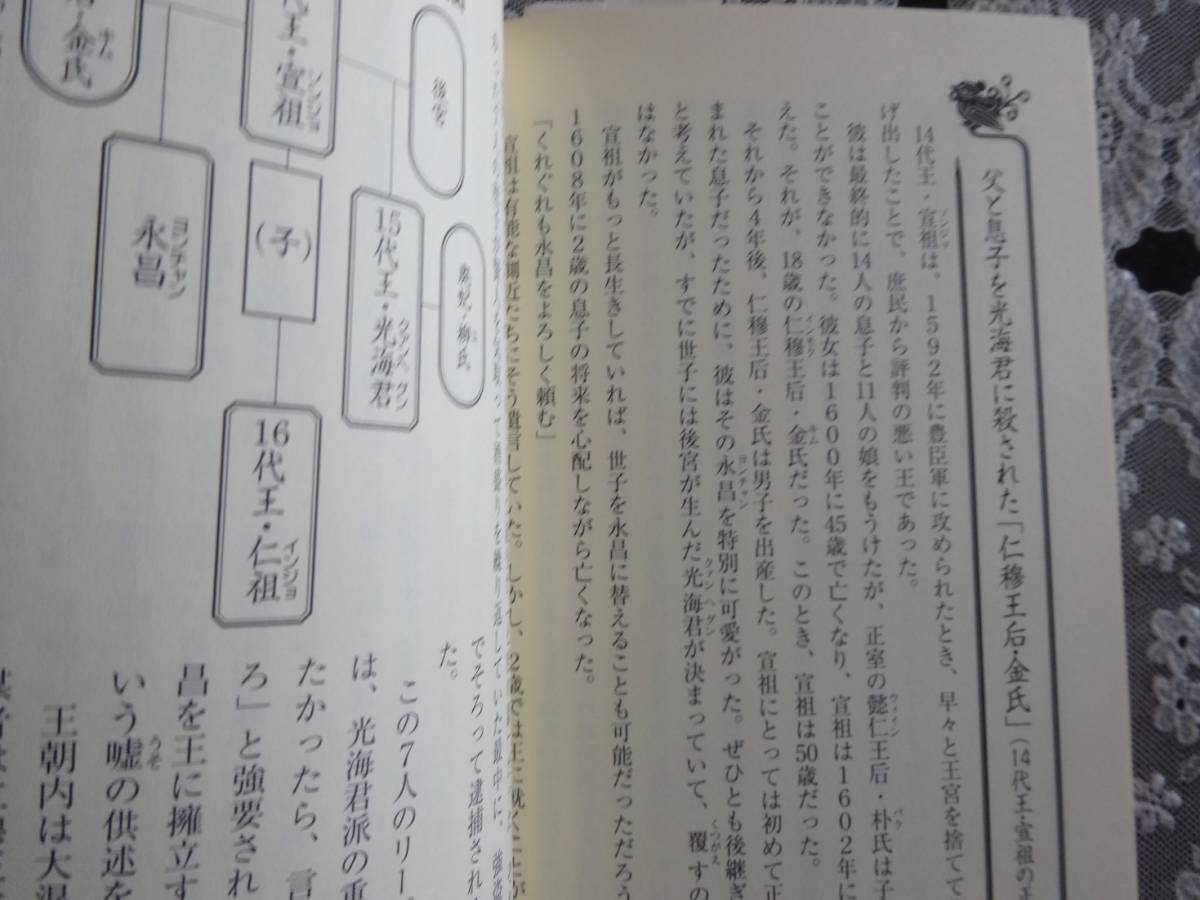 父と息子を光海君に殺された「仁穆王后・金氏」(14代王・宣祖の正
14代王・宣祖は、1592年に豊臣軍に攻められたとき、早々と王宮を捨てて
げ出したことで、庶民から評判の悪い王であった。
彼は最終的に14人の息子と11人の娘をもうけたが、正室の懿仁王后・朴氏は子
ことができなかった。彼女は1600年に45歳で亡くなり、宣祖は1602年に
えた。それが、18歳の仁穆王后・金氏だった。このとき、宣祖は50歳だった。
それから4年後、仁穆王后・金氏は男子を出産した。宣祖にとっては初めて正
まれた息子だったために、彼はその永昌を特別に可愛がった。ぜひとも後継ぎ
と考えていたが、すでに世子には後宮が生んだ光海君が決まっていて、覆すの
はなかった。
宣祖がもっと長生きしていれば、世子を永昌に替えることも可能だっただろう
1608年に2歳の息子の将来を心配しながら亡くなった。
「くれぐれも永昌をよろしく頼む」
宣祖は有能な側近たちにそう遺言していた。しかし、2歳では王に就くことが
後宮
15代王・光海君
クァンヘグン
廃妃・柳氏
代王・宣祖
ソンジョ
・金氏
キム
(子)
永昌
ヨンチャン
16代王・仁祖
インジョ
でそろって逮捕され
た。
この7人のリー
は、光海君派の重
たかったら、言
ろ」と強要され
昌を王に擁立す
いう嘘の供述を
王朝内は大混